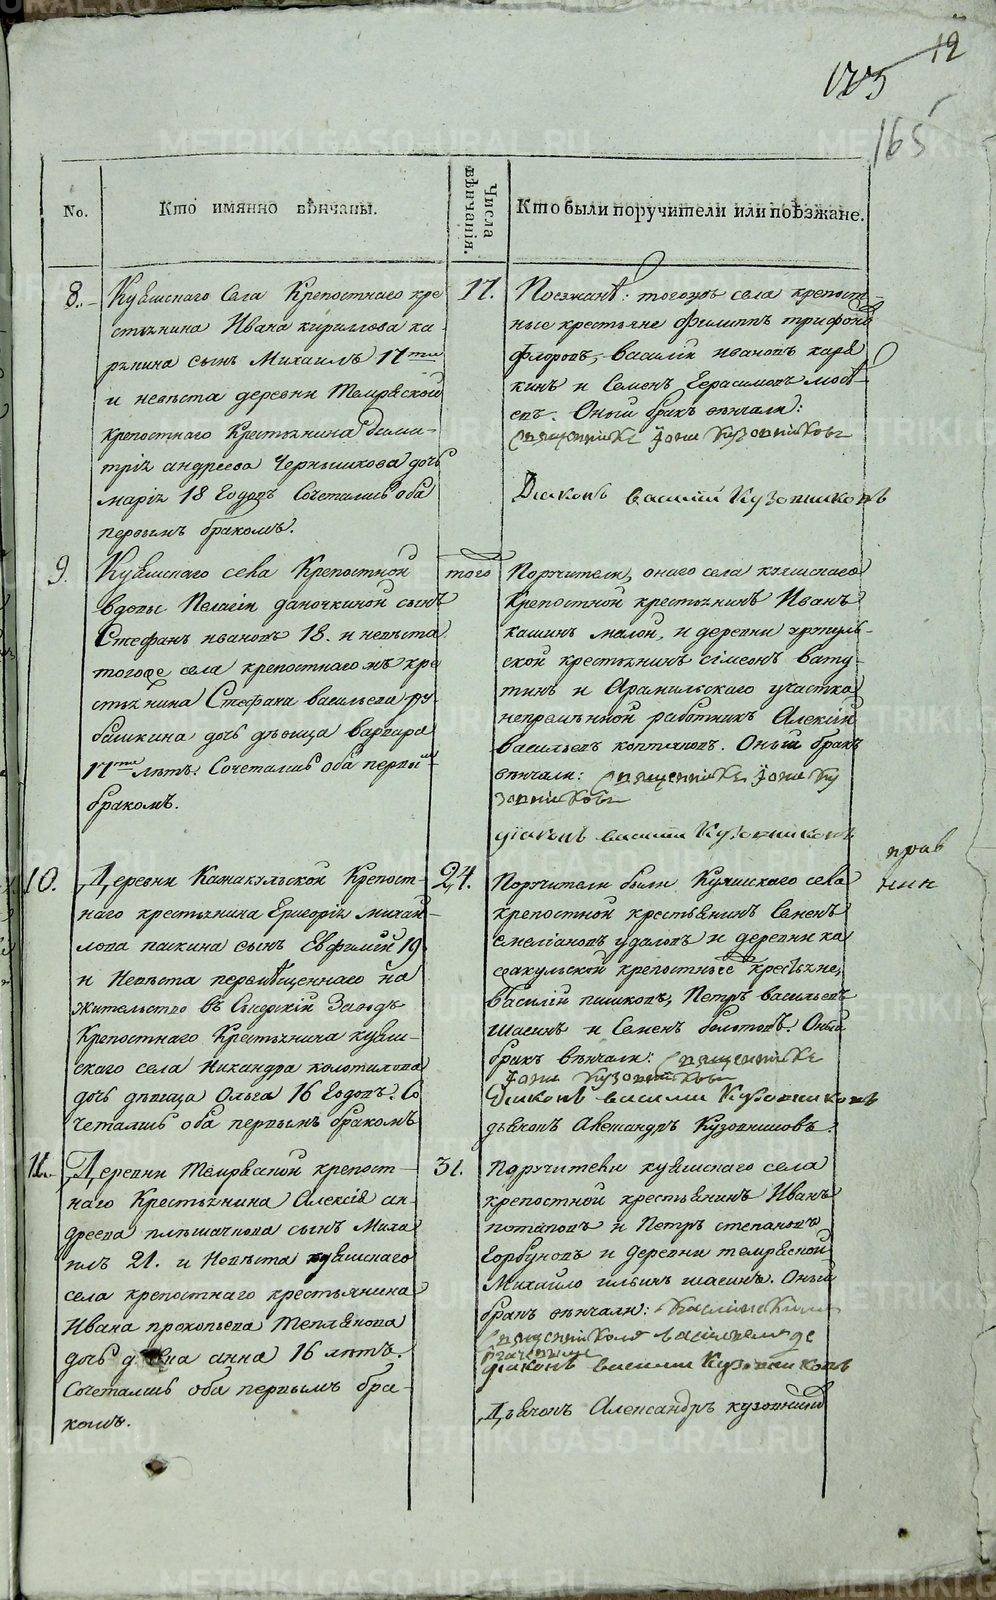 12
173
165
No.
Кто имянно вѣнчаны.
Числа вѣнчанія.
Кто были поручители или поѣзжане.
8.
Куяшскаго села Крепостнаго кре
стьянина Ивана Кириллова ка-
рякина сынъ Михаилъ 17ти
и невѣста деревни Темряской
крепостнаго Крестьянина Дими-
трія андреева Чернышкова дочь
марія 18 Годовъ Сочетались оба
первымъ бракомъ.
17.
Поезжанѣ: тогожъ села крепост-
ные крестьяне Филиппъ трифоновъ
Флоровъ, Василій ивановъ каря
кинъ и Семенъ Герасимовъ
Оный бракъ вѣнчали:
священникъ Іоанн Кузовниковъ
Діаконъ василий Кузовниковъ
9.
Куяшскаго села Крепостной
вдовы Пелагіи даночкиной сынъ
Стефанъ ивановъ 18. и невѣста
тогоже села крепостнагожъ кре
стьянина Стефана васильева ру-
башкина дочь дѣвица варвара
17ти лѣтъ. Сочетались оба первы
бракомъ.
того
Поручители, онаго села куяшскаго
Крепостной крестьянинъ Иванъ
кашинъ малой, и деревни
ской крестьянинъ сімеонъ вату-
тинъ и Арамильскаго участка
непремѣнной работникъ Алексій
васильевъ коптяковъ. Оный бракъ
вѣнчали: священникъ Іоанн Ку
зовниковъ
діаконъ василий Кузовниковъ
10.
Деревни Камакульской Крепост-
наго крестьянина Григорія михай-
лова пашкина сынъ Евфимій 19
и Невѣста перемѣщеннаго на
жительство въ Сысерскій Заводъ
Крепостнаго Крестьянина куяш-
скаго села Никандра
дочь дѣвица Ольга 16 Годовъ. Со
четались оба первымъ бракомъ
24.
Поручители были Куяшскаго села
крепостной крестьянинъ Семенъ
емеліановъ удаловъ и деревни ка
макульской крепостные крестьяне,
Василій пашковъ, Петръ васильевъ
шасинъ и Семенъ болотовъ. Оный
бракъ вѣнчали: священникъ
Іоанн Кузовниковъ
Діаконъ василий Кузовниковъ
дьячокъ Александръ Кузовниковъ.
11.
Деревни Темряской крепост-
наго Крестьянина Алексія ан-
дреева плѣшачкова сынъ Миха
илъ 21. и Невѣста куяшскаго
села крепостнаго крестьянина
Ивана прокопьева Теплякова
дочь анна 16 лѣтъ.
Сочетались оба первымъ бра-
комъ.
31.
Поручители куяшскаго села
крепостной крестьянинъ Иванъ
потаповъ и Петръ степановъ
Горбуновъ и деревни темряской
Михайло ильинъ шасинъ. Оный
бракъ вѣнчали:
діаконъ василий Кузовниковъ
Дьячокъ Александръ кузовников